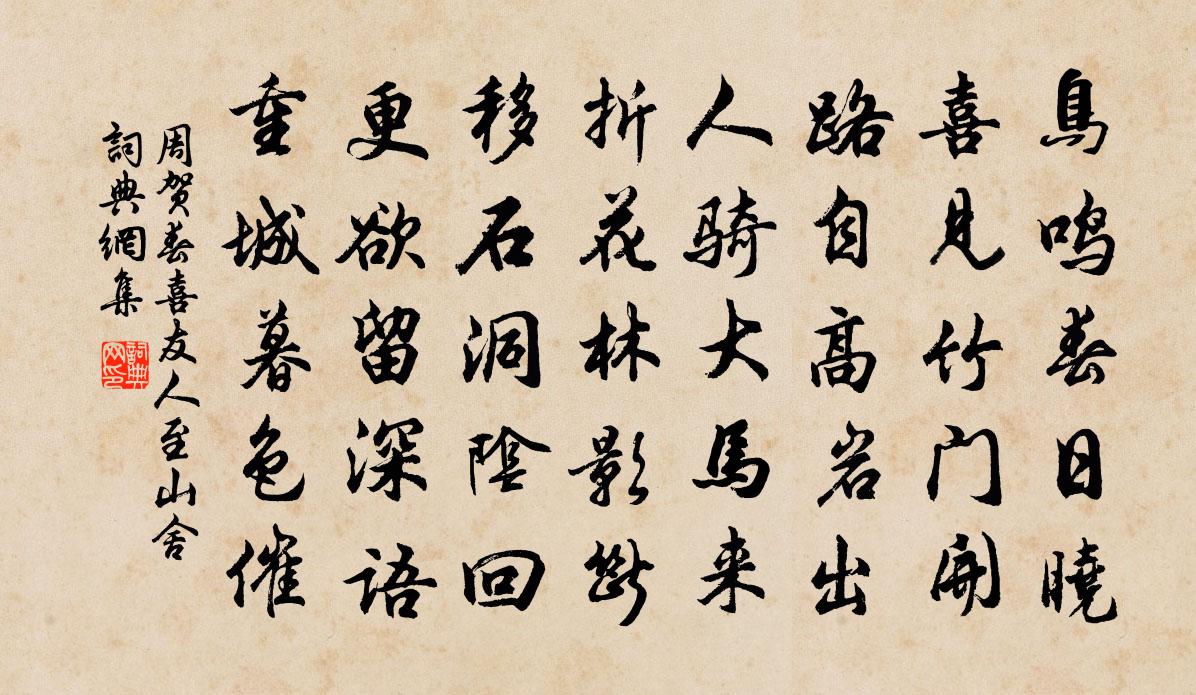 鳥鸣春日曉
喜見竹门開
路自高岩出
人骑大馬来
折花林影斷
移石洞陰回
更欲留深語
重城暮色催
周贺春喜友人至山舍
詞典網集
詞典網印